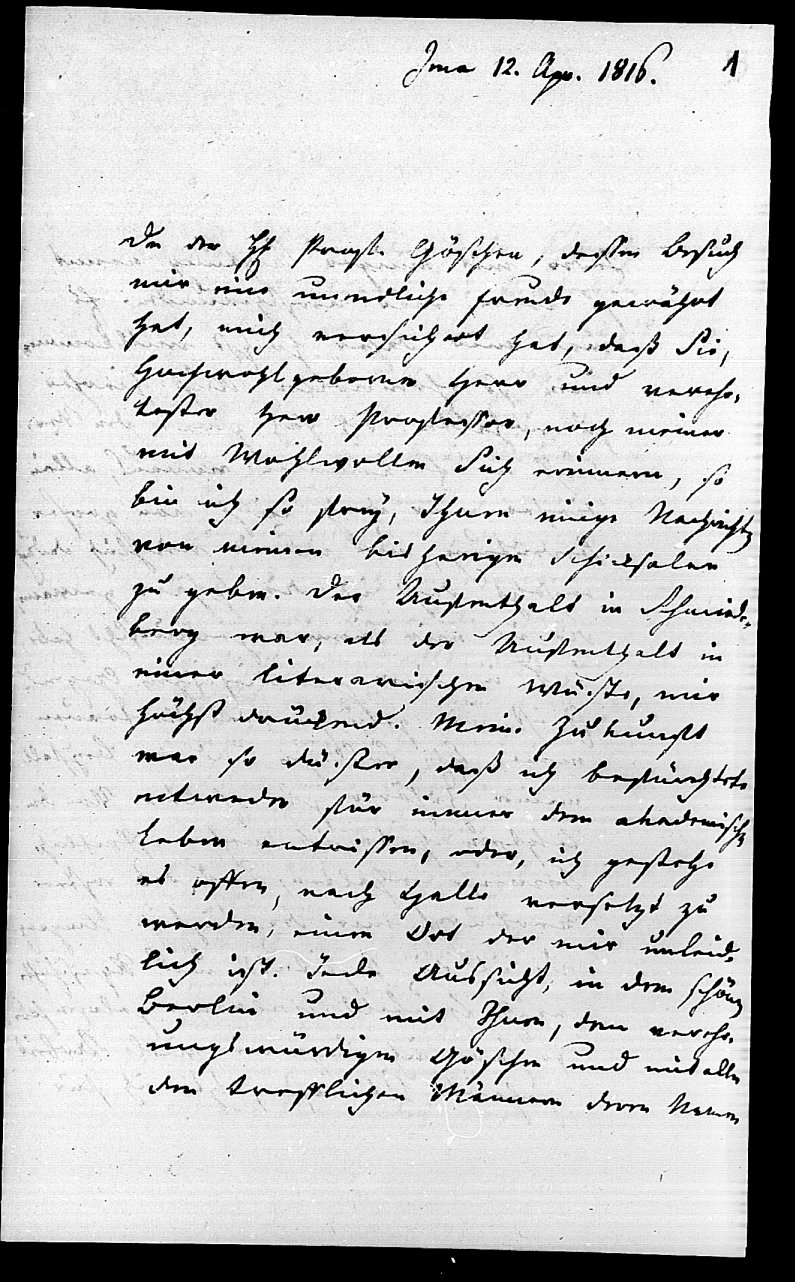 Jena 12. Apr. 1816. 1
Da der Hr Prof. Göschen, dessen Besuch
mir eine unendliche Freude gewährt
hat, mich versichert hat, daß Sie,
Hochwohlgeborner Herr und verehr-
tester Herr Professor, noch meiner
mit Wohlwollen Sich erinnern, so
bin ich so frey, Ihnen einige Nachrichten
von meinen bisherigen Schicksalen
zu geben. Der Aufenthalt in Schmiede-
berg war, als der Aufenthalt in
einer literarischen Wüste, mir
höchst drückend. Meine Zukunft
war so düster, daß ich befürchtete
entweder für immer dem akademischen
Leben entrissen, oder, ich gestehe
es offen, nach Halle versetzt zu
werden, einem Ort der mir unleid-
lich ist. Jede Aussicht, in dem schönen
Berlin und mit Ihnen, dem verehr-
ungswürdigen Göschen und mit allen
den trefflichen Männern deren Namen